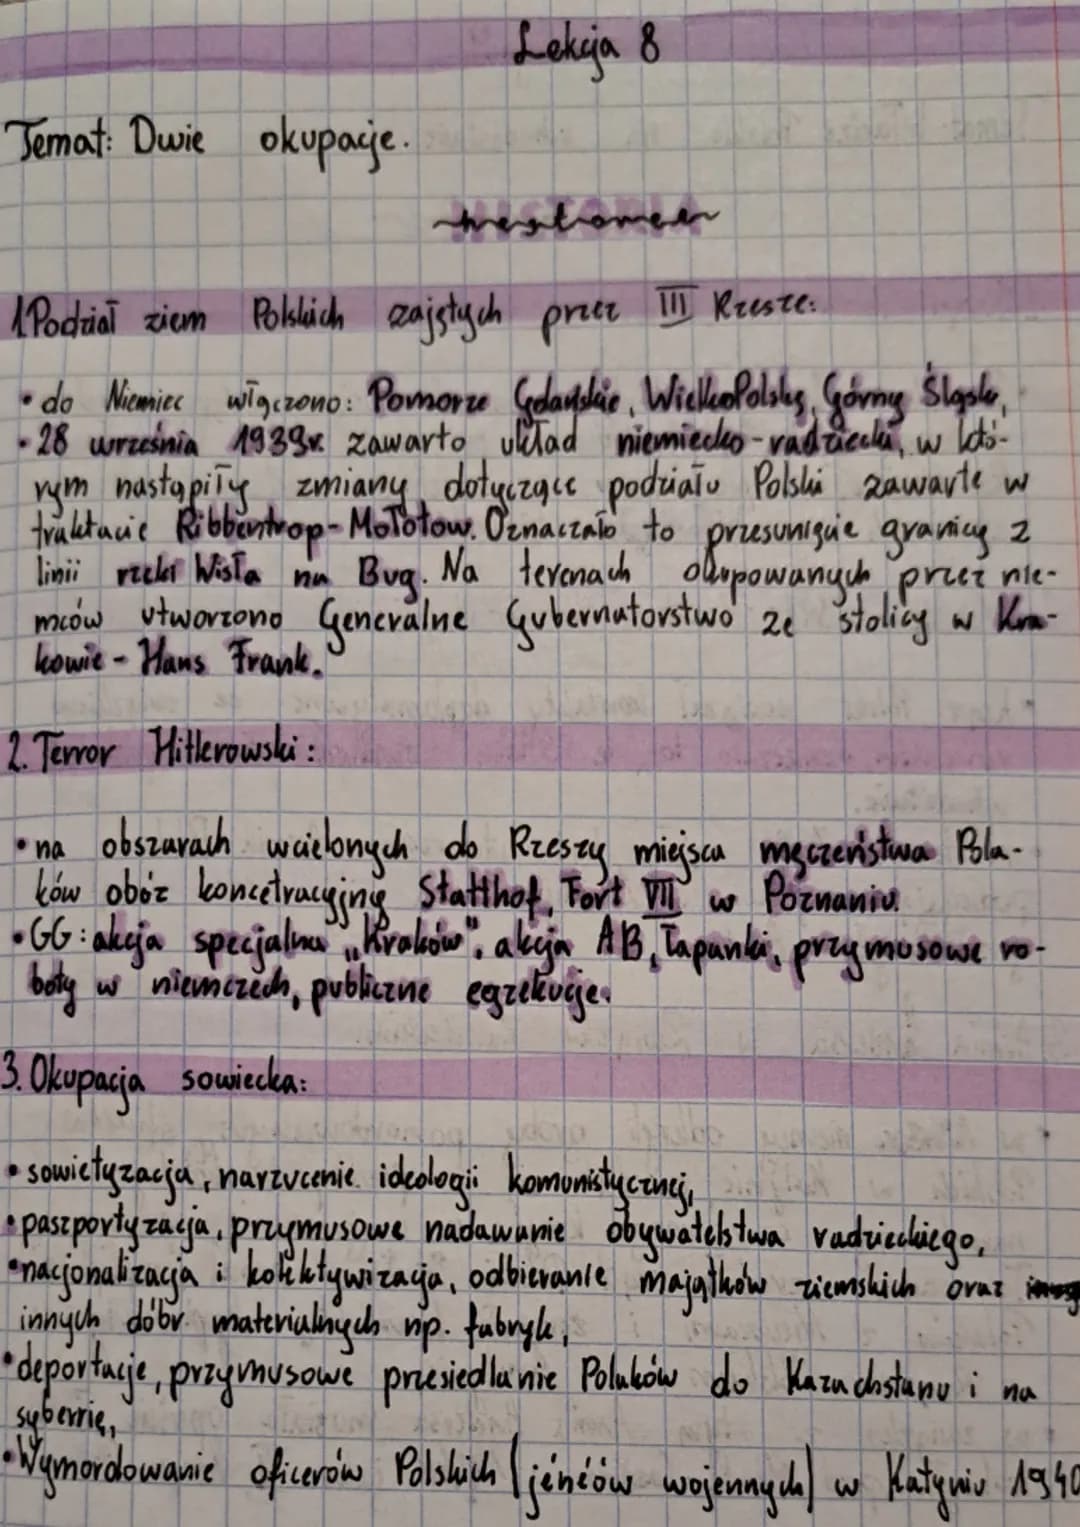 Lekcja 8
Temat: Dwie okupacje.
1.Podział ziem Polskich zajętych przez III Rzesze:
• do Niemiec włączono: Pomorze Gdańskie, WielkoPolskę, Górny Śląsk,
• 28 września 1939r. zawarto układ niemiecko-radziecki, w któ-
rym nastąpiły zmiany dotyczące podziału Polski zawarte w
traktacie Ribbentrop-Mołotow. Oznaczało to przesunięcie granicy z
linii rzeki Wisła na Bug. Na terenach okupowanych przez nie-
mców utworzono Generalne Gubernatorstwo ze stolicy w Kra-
kowie - Hans Frank.
2. Terror Hitlerowski:
• na obszarach wcielonych do Rzeszy miejsca męczeństwa Pola-
ków obóz koncetracyjny Statthof, Fort VII w Poznaniu.
• GG: akcja specjalna „Kraków", akcja AB, łapanki, przymusowe ro-
boty w niemczech, publiczne egzekucje.
3. Okupacja sowiecka:
• sowietyzacja, narzucenie ideologii komunistycznej,
• paszportyzacja, przymusowe nadawanie obywatelstwa radzieckiego,
• nacjonalizacja i kolektywizacja, odbieranie majątków ziemskich oraz
innych dóbr materialnych np. fabryk,
• deportacje, przymusowe przesiedlanie Polaków do Kazachstanu i na
syberrię,
• Wymordowanie oficerów Polskich (jénéów wojennych) w Katyniu 1940